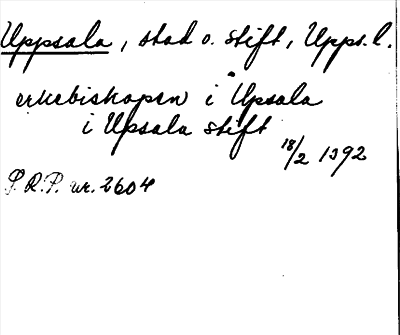 Uppsala, stad o. stift, Upps. l.
erkebiskopen i Upsala
i Upsala stift
18/2 1392
S.R.P. nr. 2604